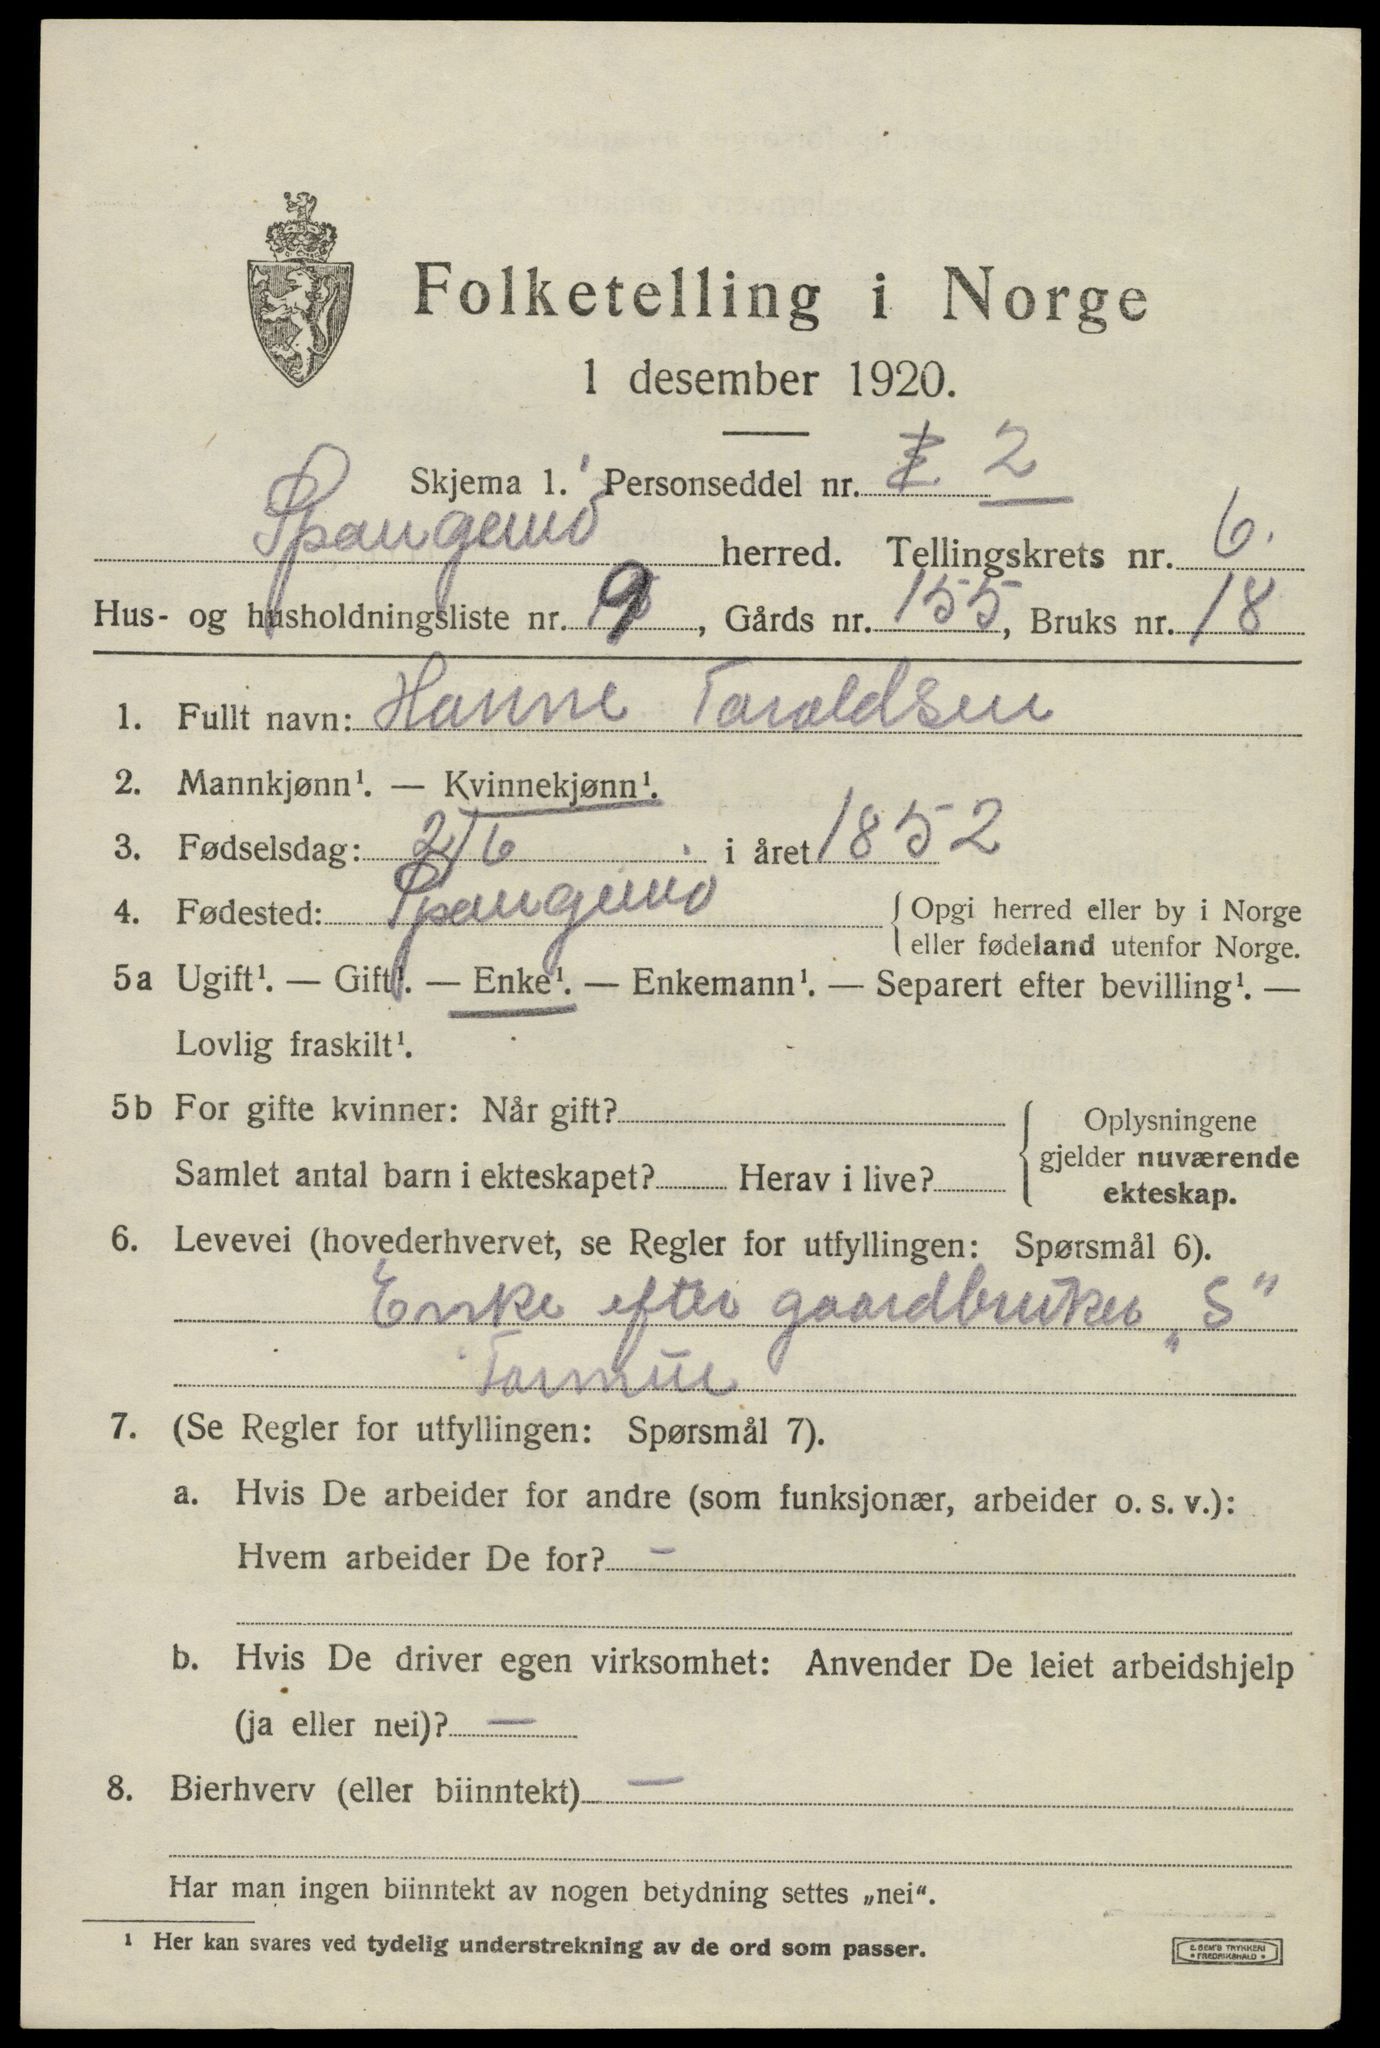 Folketelling i Norge
1 desember 1920.
Skjema 1. Personseddel nr. 2
Spangereid herred. Tellingskrets nr. 6.
Hus- og husholdningsliste nr. 9, Gårds nr. 155, Bruks nr. 18
1. Fullt navn: Hanne Taraldsen
2. Mannkjønn¹. — Kvinnekjønn¹.
3. Fødselsdag: 2/6 i året 1852
4. Fødested: Spangereid { Opgi herred eller by i Norge
eller fødeland utenfor Norge.
5a Ugift¹. — Gift¹. — Enke¹. — Enkemann¹. — Separert efter bevilling¹. —
Lovlig fraskilt¹.
5b For gifte kvinner: Når gift? { Oplysningene
gjelder nuværende
Samlet antal barn i ekteskapet? Herav i live?
ekteskap.
6. Levevei (hovederhvervet, se Regler for utfyllingen: Spørsmål 6).
Enke efter gaardbruker „S“
7. (Se Regler for utfyllingen: Spørsmål 7).
a. Hvis De arbeider for andre (som funksjonær, arbeider o. s. v.):
Hvem arbeider De for? —
b. Hvis De driver egen virksomhet: Anvender De leiet arbeidshjelp
(ja eller nei)? —
8. Bierhverv (eller biinntekt) —
Har man ingen biinntekt av nogen betydning settes „nei“.
¹ Her kan svares ved tydelig understrekning av de ord som passer.
E. SEM'S TRYKKERI
• FREDRIKSHALD •